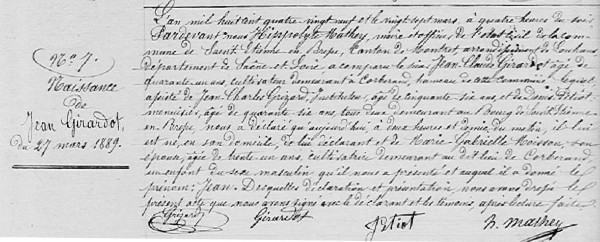 N° 7.
Naissance
de
Jean Girardot,
Du 27 mars 1889.
L'an mil huit cent quatre vingt neuf et le vingt sept mars, à quatre heures du soir
Pardevant nous Hippolyte Mathey, maire et officier de l'état civil de la com
mune de Saint Etienne en Bresse, Canton de Montret arrondissement de Louhans
Département de Saône et Loire a comparu le sieur Jean Claude Girardot âgé de
quarante un ans, cultivateur demeurant à Corberand, hameau de cette commune lequel
assisté de Jean Charles Grizard, Instituteur, âgé de cinquante six ans et de Denis Petiot
menuisier, âgé de quarante six ans, tous deux demeurant au Bourg de Saint Etienne
en Bresse, nous a déclaré qu'aujourd'hui, à deux heures et demie du matin, il lui
est né, en son domicile, de lui déclarant et de Marie Gabrielle Moisson, son
épouse, âgée de trente un ans, cultivatrice demeurant au dit lieu de Corberand
un enfant du sexe masculin qu'il nous a présenté et auquel il a donné le
prénom: Jean. Desquelles déclaration et présentation, nous avons dressé le
présent acte que nous avons signé avec le déclarant et les témoins, après lecture faite
Grizard Girardot Petiot H. Mathey